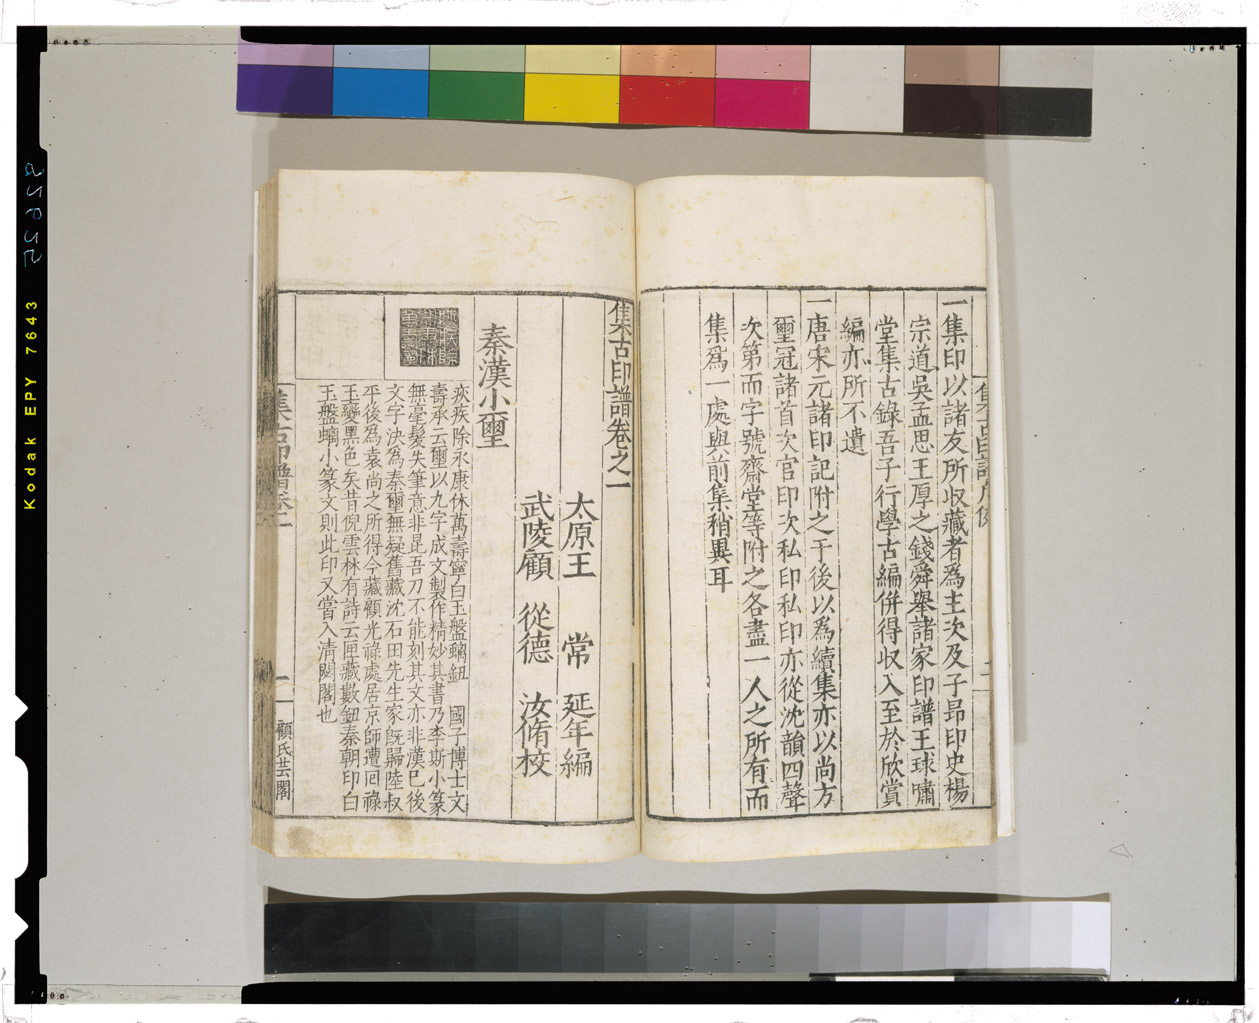 一集印以諸友所収藏者爲主次及子昂印史楊
宗道吳孟思王厚之錢舜舉諸家印譜王球嘯
堂集古錄吾子行學古編併得収入至於欣賞
編亦所不遺
一唐宋元諸印記附之于後以爲續集亦以尚方
璽冠諸首次官印次私印私印亦從沈韻四聲
次第而字號齋堂等附之各盡一人之所有而
集爲一處與前集稍異耳
集古印譜卷之一
太原王 常 延年編
武陵顧 從德 汝脩校
秦漢小璽
疢疾除永康休萬壽寧白玉盤螭鈕 國子博士文
壽承云璽以九字成文製作精妙其書乃李斯小篆
無毫髮失筆意非昆吾刀不能刻其文亦非漢已後
文字決爲秦璽無疑舊藏沈石田先生家旣歸陸叔
平後爲袁尚之所得今藏顧光祿處居京師遭回祿
玉變黑色矣昔倪雲林有詩云匣藏數鈕秦朝印白
玉盤螭小篆文則此印又當入清閟閣也
集古印譜卷一
一
顧氏芸閣
Kodak EPY 7643